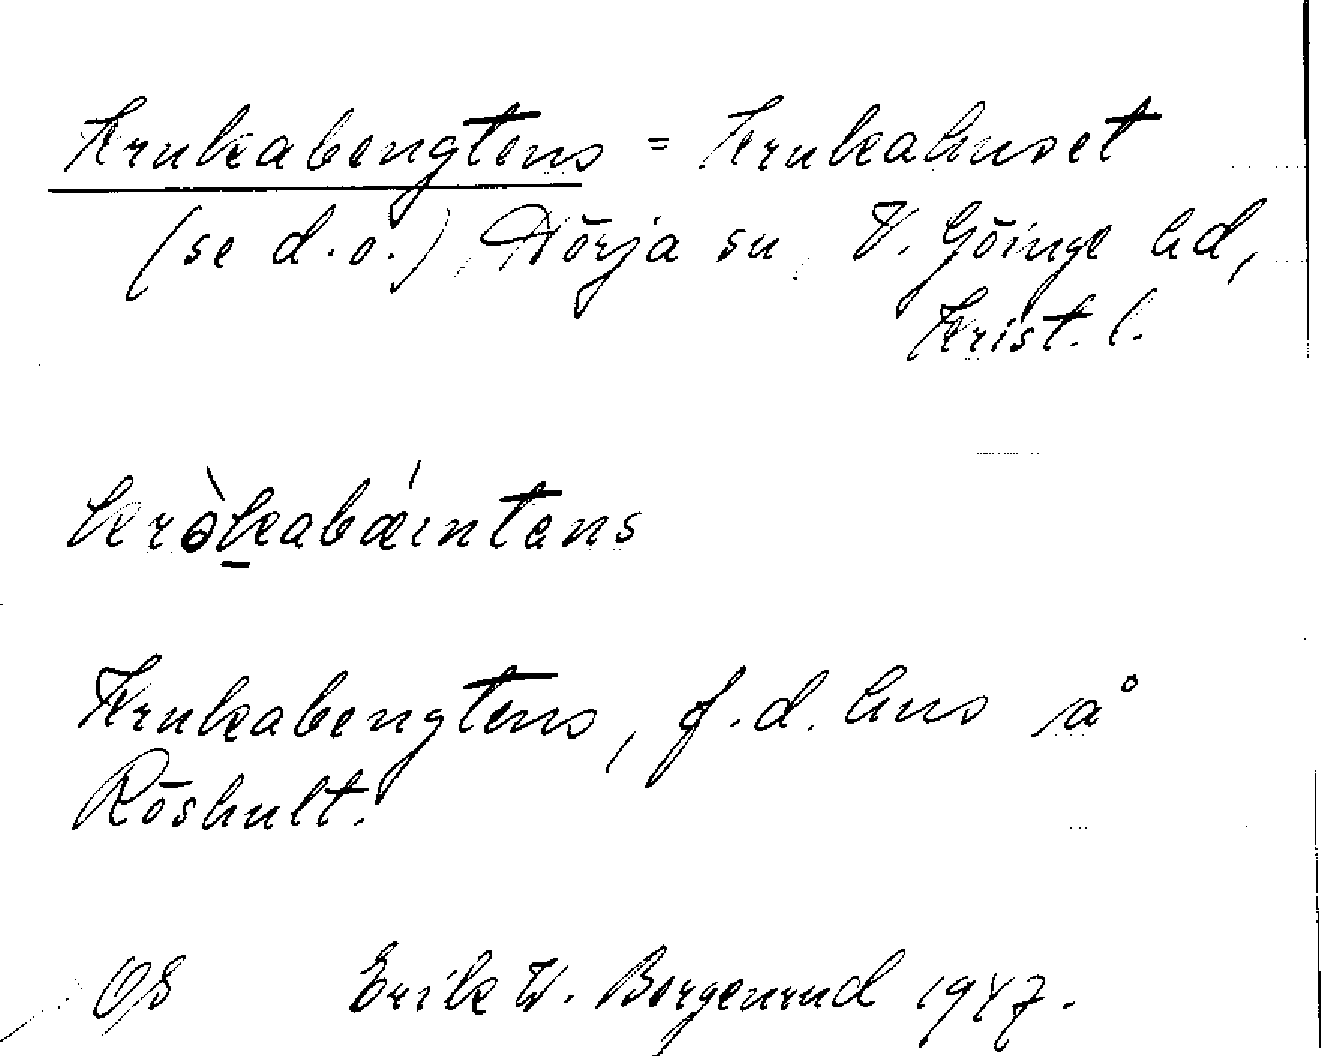 Krukabengtens = Krukahuset
(se d.o.), Nörja sn, V. Göinge hd,
Krist. l.
kròkabáintens
Krukabengtens, f.d. hus å
Röshult.
OS Erik W. Borgenrud 1947.